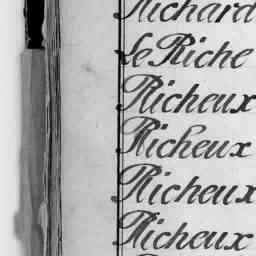 Richard
le Riche
Richeux
Richeux
Richeux
Richeux